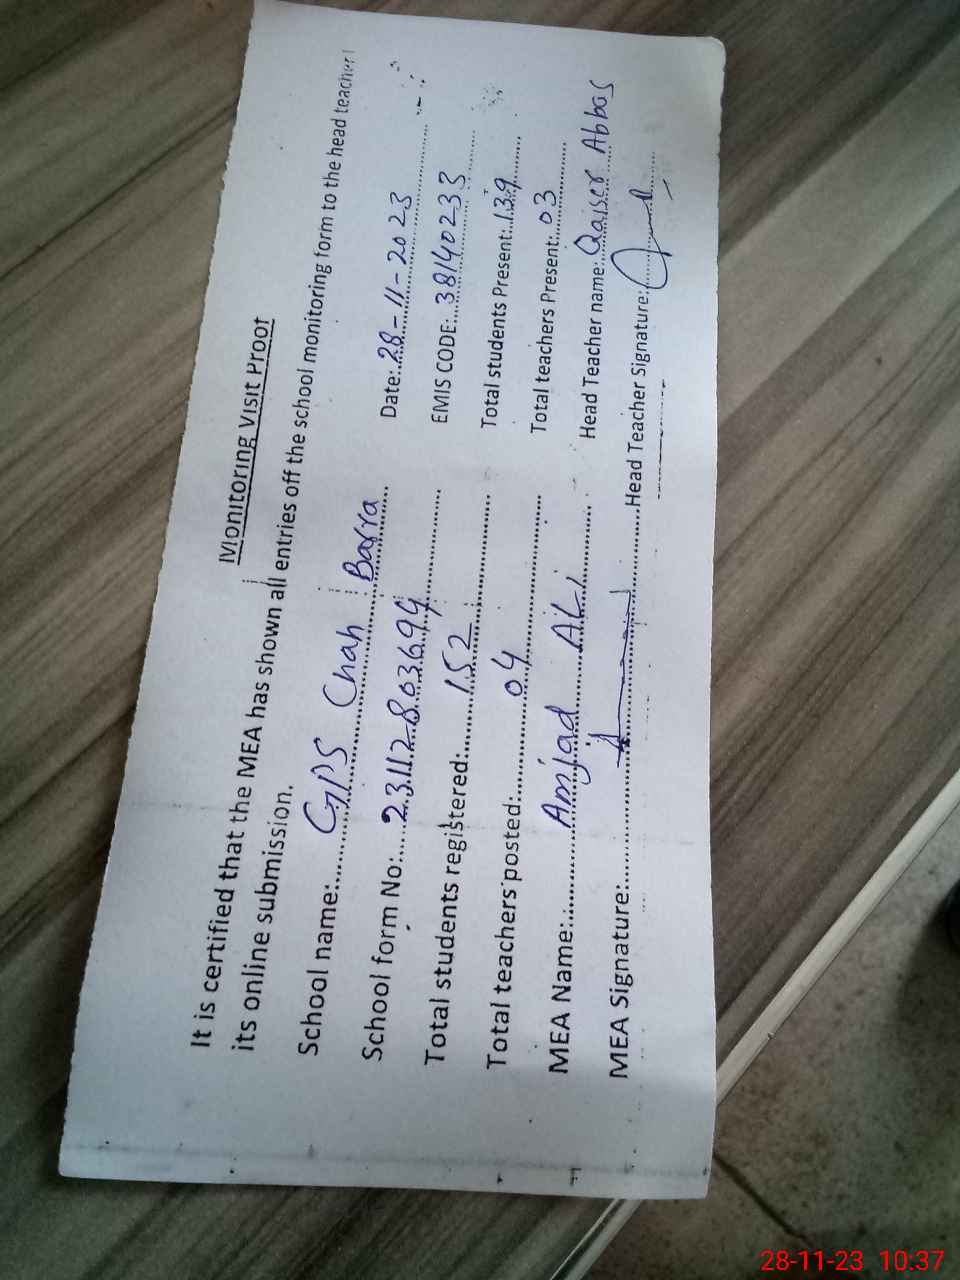 Monitoring Visit Proof
It is certified that the MEA has shown all entries off the school monitoring form to the head teacher
its online submission.
School name: GPS Chah Barra Date: 28-11-2023
School form No: 23112803694 EMIS CODE: 38140233
Total students registered: 152 Total students Present: 139
Total teachers posted: 04 Total teachers Present: 03
MEA Name: Amjad ALi Head Teacher name: Qaiser Abbas
MEA Signature: Head Teacher Signature:
28-11-23 10:37